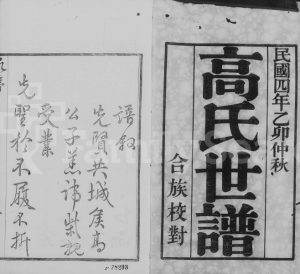 民國四年乙卯仲秋
高氏世譜
合族校對
譜敘
先賢共城侯高
公子羔諱柴祀
受業
先聖於不履不折